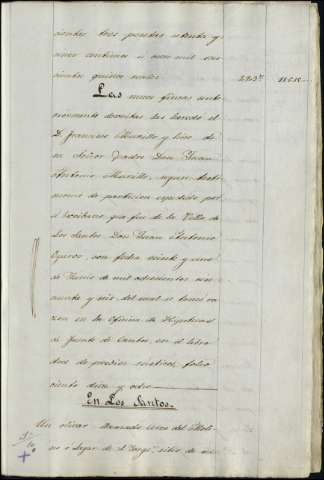 cientas tres pesetas setenta y
cinco centimos u once mil seis
cientos quince reales
Las nueve fincas ante
riormente descritas las heredó el
D. Francisco Murillo y hizo de
su Señor padre Don Juan
Antonio Murillo, segun testi
monio de particion espedido por
el Escribano que fué de la Villa de
Los Santos, Don Juan Antonio
con fecha veinte y uno
de Junio de mil ochocientos
y seis, del cual se tomó ra
zon en la oficina de Hipotecas
de Fuente de Cantos, en el libro
dos de predios rusticos, folio
ciento diez y ocho
En Los Santos.
Un olivar llamado del Moli
no ó Lagar de el sitio de